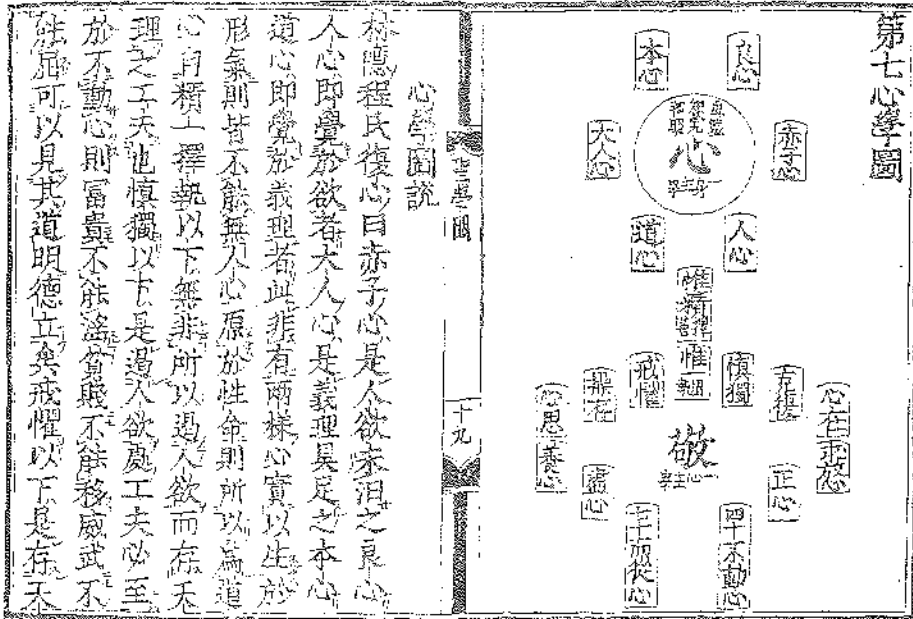 第七心學圖
良心
本心
赤子心
大人心
虛靈
知覺
神明
心
一身主宰
人心
道心
惟精擇善
惟一固執
愼獨
戒懼
克復
操存
心在
求放心
心思
養心
正心
盡心
敬
一心主宰
四十不動心
七十而從心
十九
心學圖說
林隱程氏復心曰赤子心是人欲未汨之良心
人心即覺於欲者大人心是義理具足之本心
道心即覺於義理者此非有兩樣心實以生於
形氣則皆不能無人心原於性命則所以爲道
心自精一擇執以下無非所以遏人欲而存天
理之工夫也愼獨以下是遏人欲處工夫必至
於不動心則富貴不能淫貧賤不能移威武不
能屈可以見其道明德立矣戒懼以下是存天